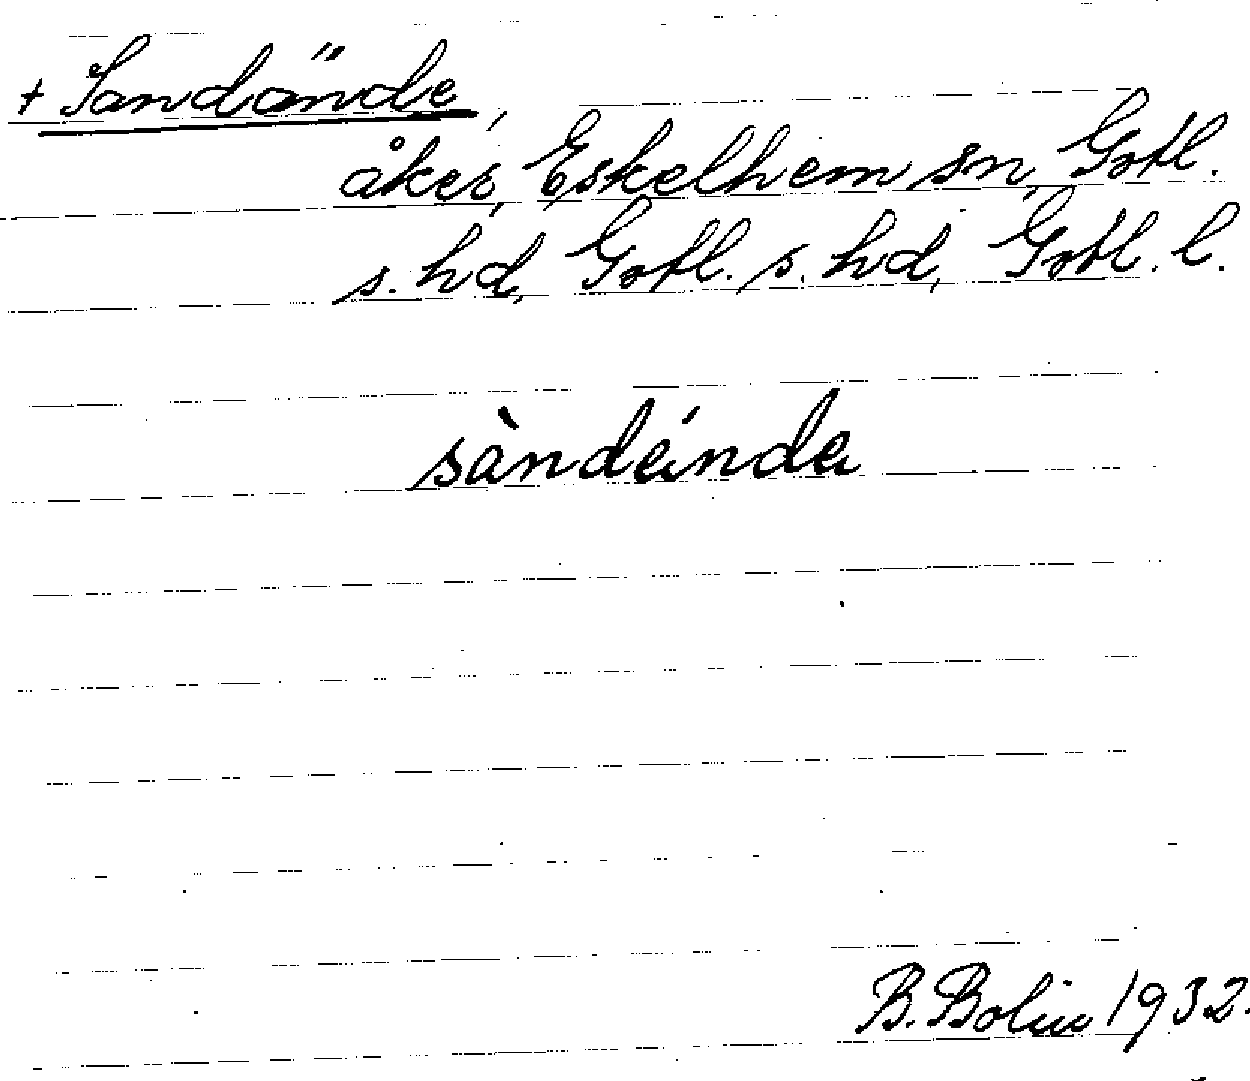 + Sandände,
åker, Eskelhem sn, Gotl.
s. hd, Gotl. s. hd, Gotl. l.
sàndándα
B. Bolin 1932.